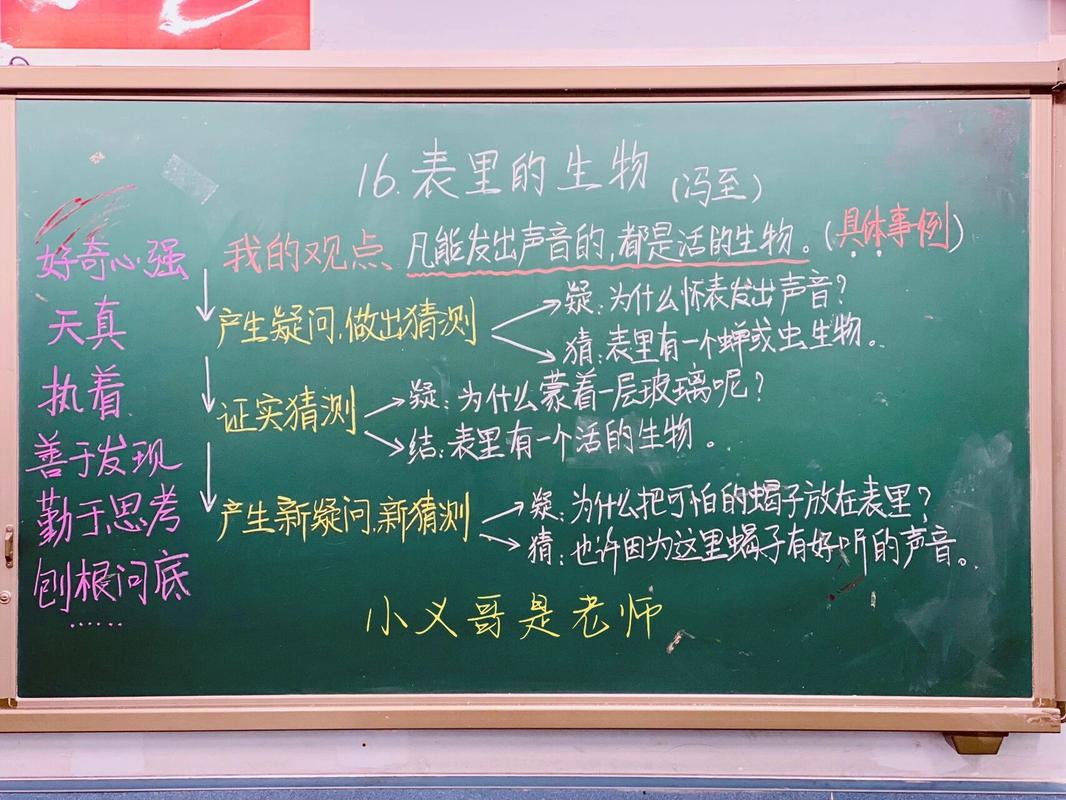 16.表里的生物(冯至)
好奇心强
天真
执着
善于发现
勤于思考
刨根问底
……
我的观点、凡能发出声音的,都是活的生物。(具体事例)
产生疑问,做出猜测
疑:为什么怀表发出声音?
猜:表里有一个蝉或虫生物。
证实猜测
疑:为什么蒙着一层玻璃呢?
结:表里有一个活的生物。
产生新疑问,新猜测
疑:为什么把可怕的蝎子放在表里?
猜:也许因为这里蝎子有好听的声音。
小义哥是老师